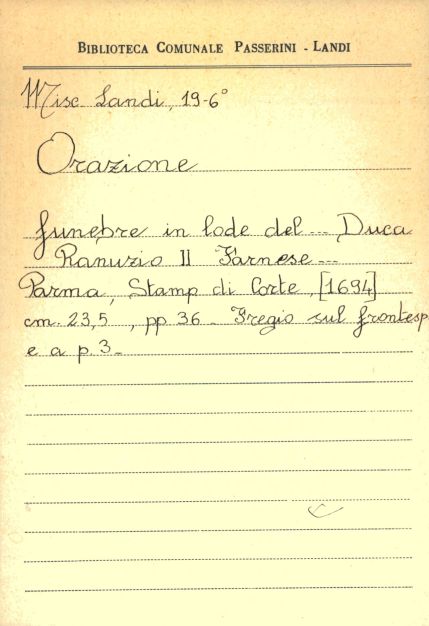 BIBLIOTECA COMUNALE PASSERINI - LANDI
Misc Landi, 19-6°
Orazione
funebre in lode del --- Duca
Ranuzio II Farnese ---
Parma, Stamp di Corte, [1694]
cm. 23,5 , pp 36 - Fregio sul frontesp
e a p. 3 -